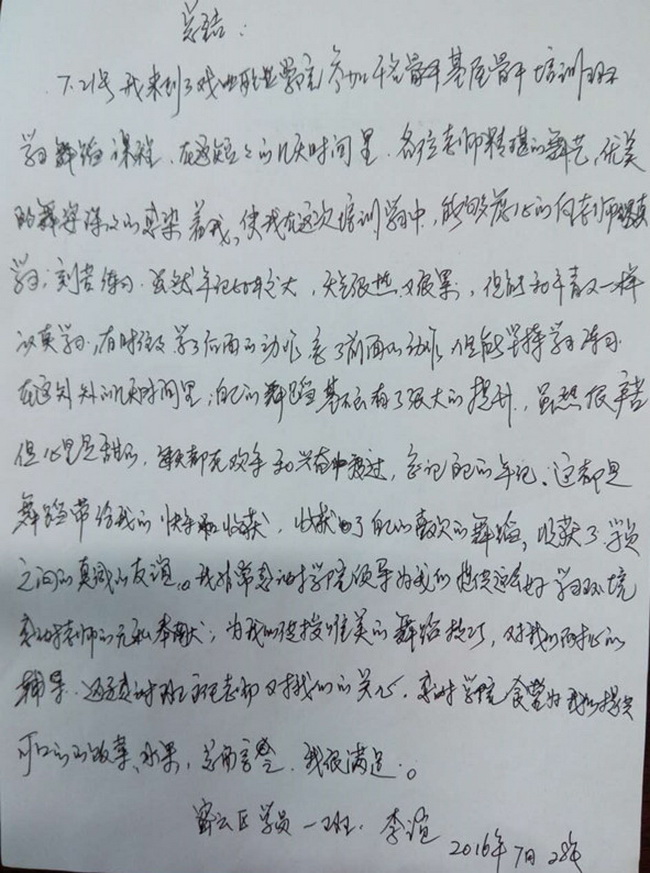 总结：
7.21号我来到了戏曲职业学院参加千名骨干基层骨干培训班
学习舞蹈课程，在这短短的几天时间里，各位老师精湛的舞艺，优美
的舞姿深深的感染着我，使我在这次培训学习中，能够虚心的向老师认真
学习，刻苦练习。虽然年记比较大，天气很热又很累，但能和年青人一样
认真学习，有时候学了后面的动作忘了前面的动作，但能坚持学习练习
在这短短的几天时间里，自己的舞蹈基本功有了很大的提升，虽然很辛苦
但心里是甜的，每天都在欢乐和兴奋中度过，忘记自己的年记、这都是
舞蹈带给我的快乐和收获，收获了自己的喜欢的舞蹈，收获了学员
之间的真诚的友谊。我非常感谢学院领导为我们提供这么好学习环境
感谢老师的无私奉献，为我们传授唯美的舞蹈技巧，对我们耐心的
辅导。还要感谢班主任老师对我们的关心，感谢学院食堂为我们提供
可口的饭菜、水果，总而言之，我很满足。
密云区学员一班：李谊
2016年7月28号